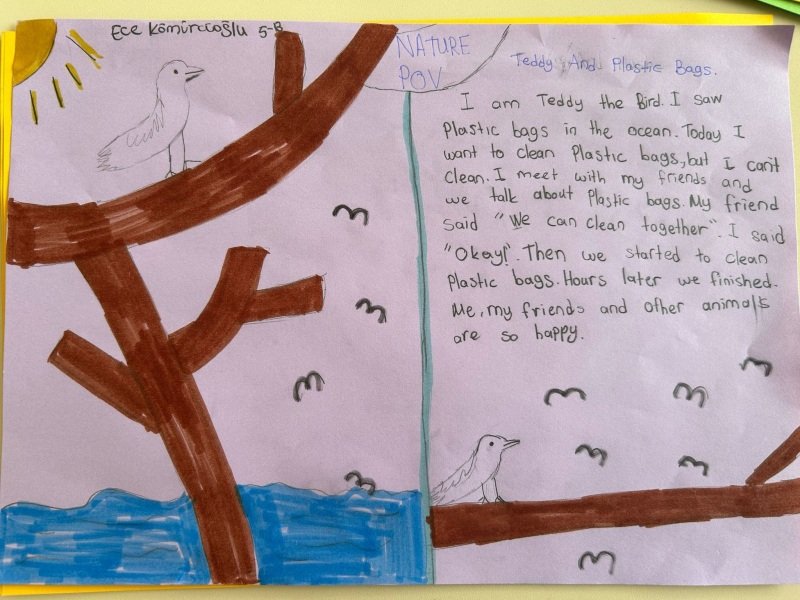 Ece Kömürcüoğlu 5-B
NATURE
POV
Teddy And Plastic Bags.
I am Teddy the Bird. I saw
Plastic bags in the ocean. Today I
want to clean Plastic bags, but I can't
clean. I meet with my friends and
we talk about Plastic bags. My friend
said "We can clean together". I said
"Okay!". Then we started to clean
Plastic bags. Hours later we finished.
Me, my friends and other animals
are so happy.